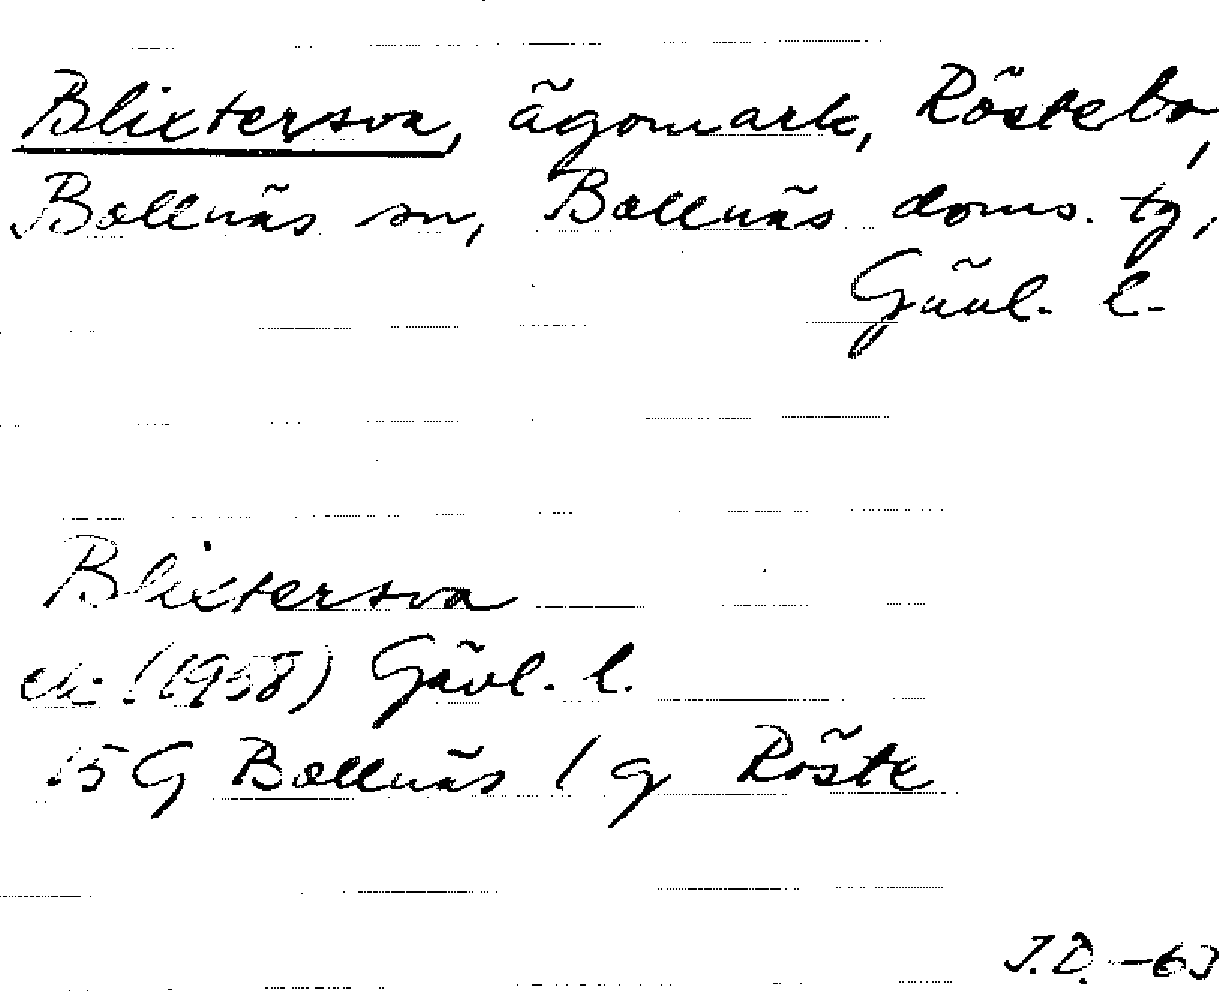 Blixtersva, ägomark, Röstebo,
Bollnäs sn, Bollnäs doms. tg,
Gävl. l.
Blixtersva
ek (1958) Gävl. l.
15 G Bollnäs / g Röste
J.D. -63